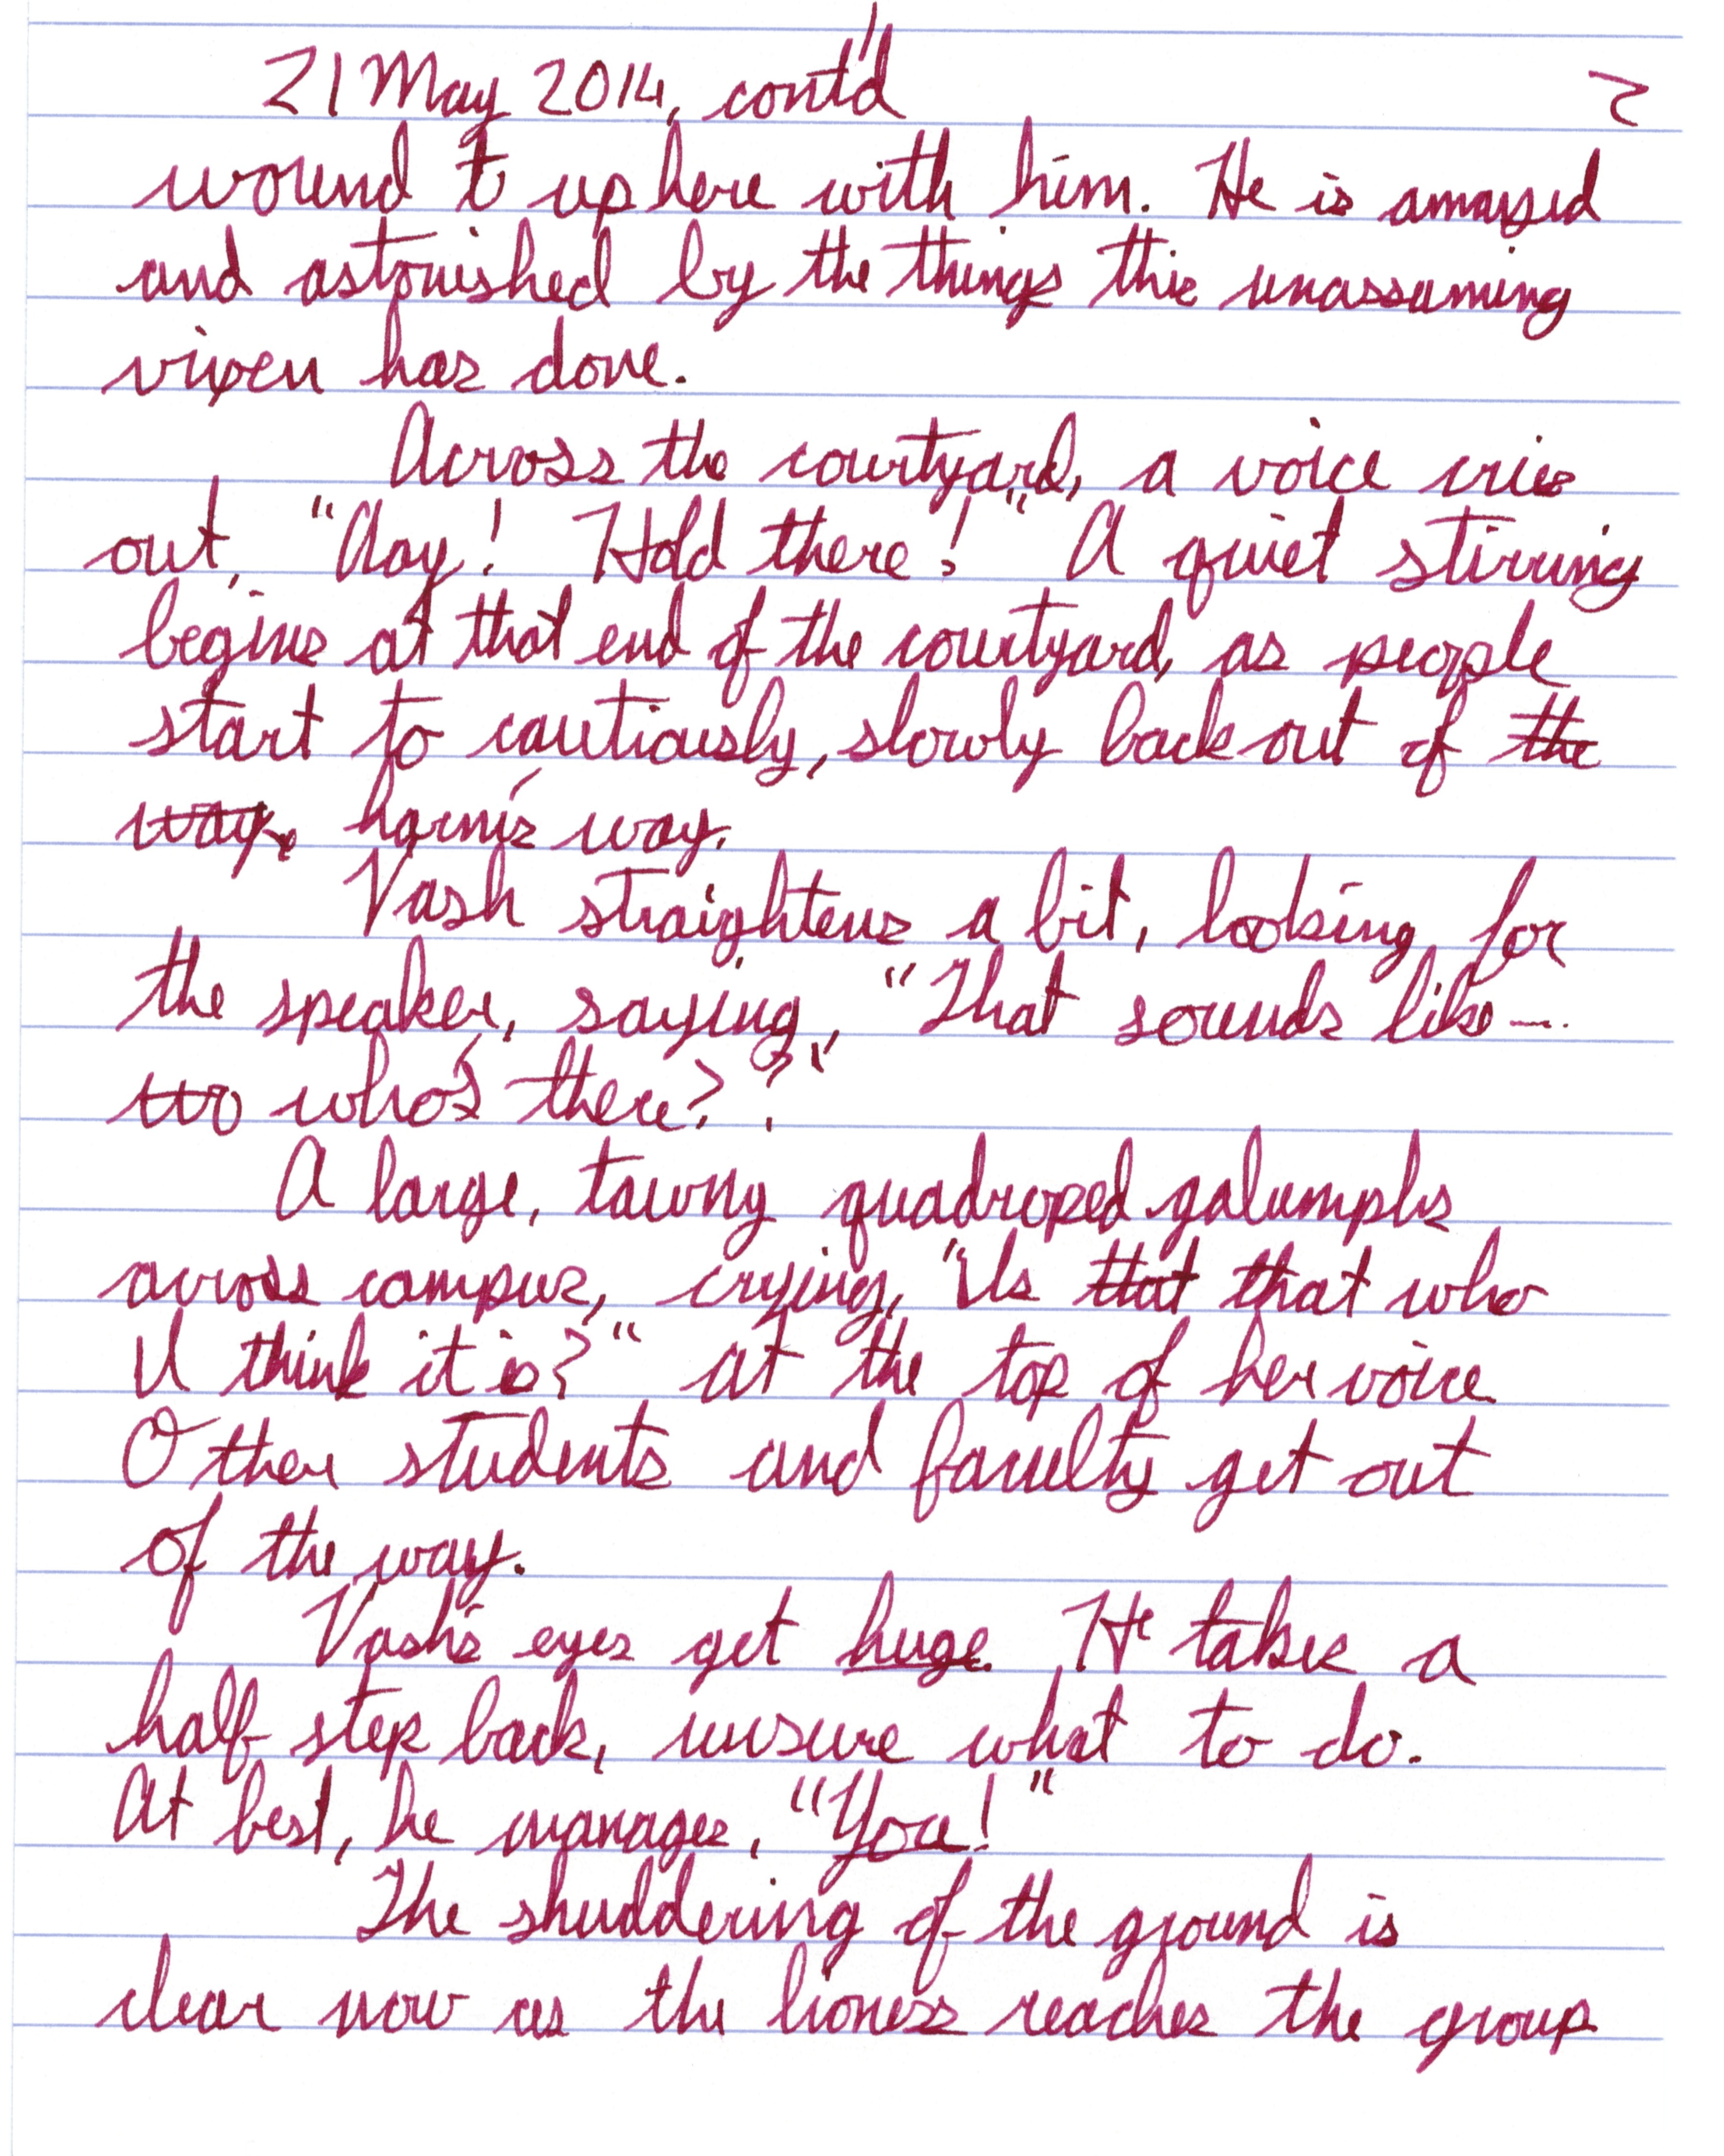 21 May 2014, cont'd 2
wound t up here with him. He is amazed
and astonished by the things this unassuming
vixen has done.
Across the courtyard, a voice cries
out, "Aay! Hold there!" A quiet stirring
begins at that end of the courtyard, as people
start to cautiously, slowly back out of ~~the~~
~~way.~~ harm's way.
Vash straightens a bit, looking for
the speaker, saying, "That sounds like—
~~wo~~ who's there??"
A large, tawny quadroped galumphs
across campus, crying, "Is ~~that~~ that who
I think it is?" at the top of her voice
Other students and faculty get out
of the way.
Vash's eyes get huge. He takes a
half step back, unsure what to do.
At best, he manages, "You!"
The shuddering of the ground is
clear now as the lioness reaches the group